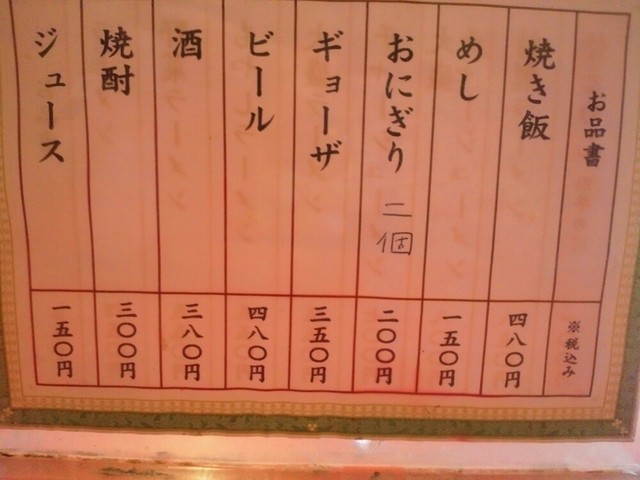 お品書
※税込み
焼き飯
四八〇円
めし
一五〇円
おにぎり 二個
二〇〇円
ギョーザ
三五〇円
ビール
四八〇円
酒
三八〇円
焼酎
三〇〇円
ジュース
一五〇円